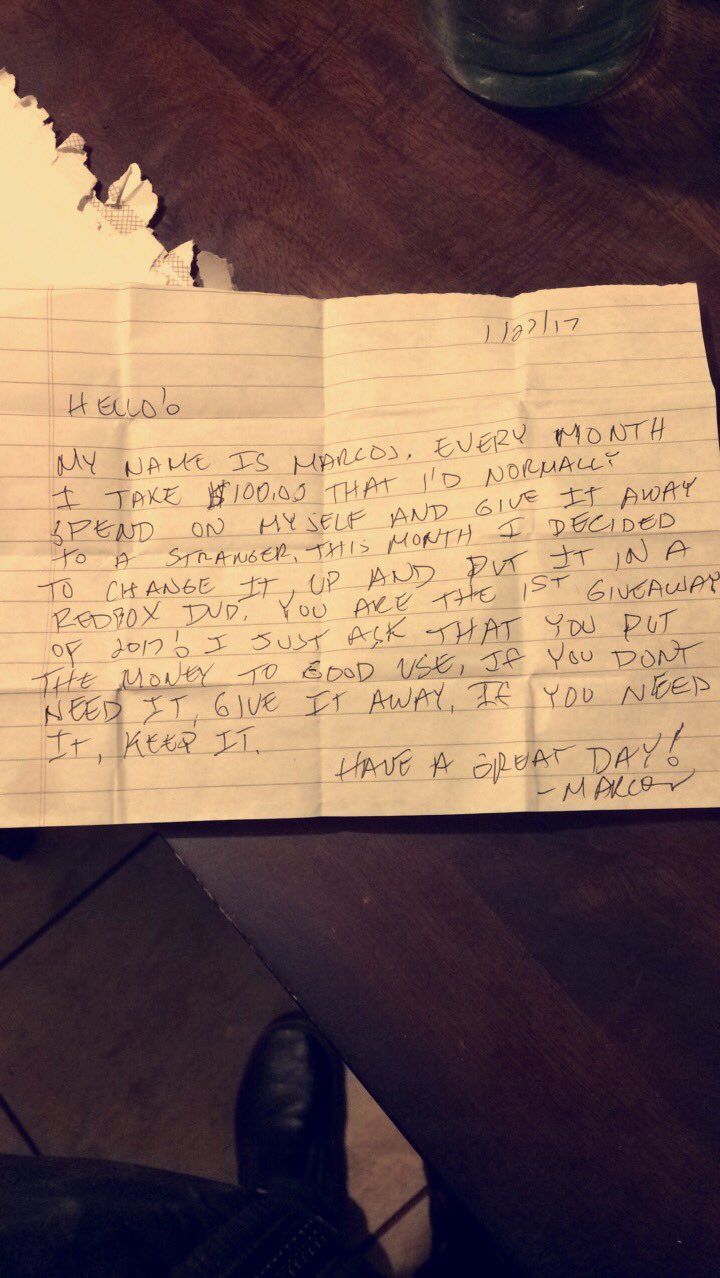 1/27/17
HELLO!
MY NAME IS MARCOS. EVERY MONTH
I TAKE $100.00 THAT I'D NORMALLY
SPEND ON MYSELF AND GIVE IT AWAY
TO A STRANGER. THIS MONTH I DECIDED
TO CHANGE IT UP AND PUT IT IN A
REDBOX DVD. YOU ARE THE 1ST GIVEAWAY
OF 2017! I JUST ASK THAT YOU PUT
THE MONEY TO GOOD USE, IF YOU DONT
NEED IT, GIVE IT AWAY, IF YOU NEED
IT, KEEP IT.
HAVE A GREAT DAY!
- MARCOS